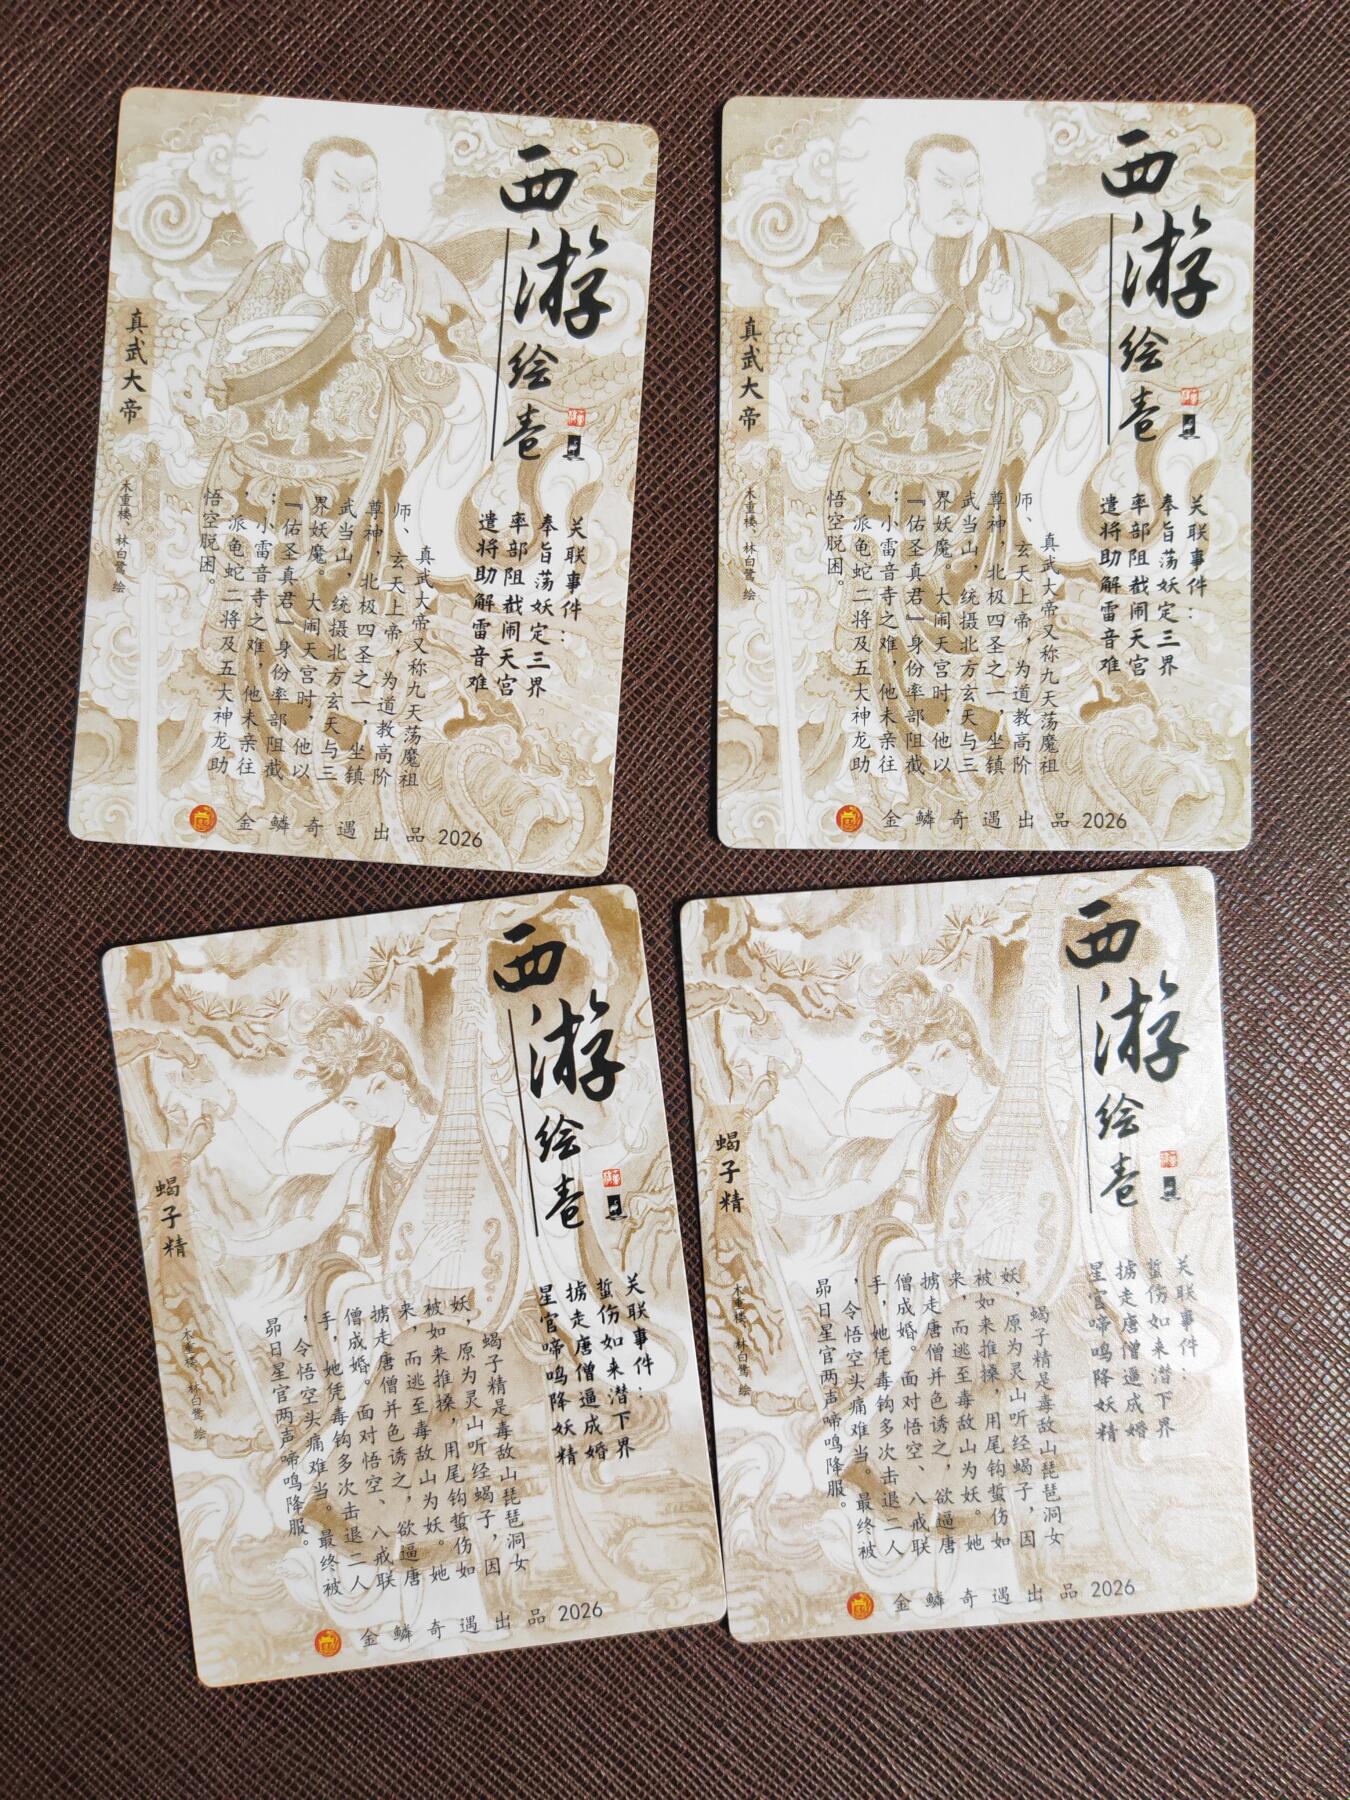 西游绘卷
关联事件：
奉旨荡妖定三界
率部阻截闹天宫
遣将助解雷音难
真武大帝又称九天荡魔祖
师、玄天上帝，为道教高阶
尊神，北极四圣之一，坐镇
武当山，统摄北方玄天与三
界妖魔。大闹天宫时，他以
『佑圣真君』身份率部阻截
；小雷音寺之难，他未亲往
，派龟蛇二将及五大神龙助
悟空脱困。
真武大帝
木重楼、林白鹭 绘
金鳞奇遇出品 2026
西游绘卷
关联事件：
奉旨荡妖定三界
率部阻截闹天宫
遣将助解雷音难
真武大帝又称九天荡魔祖
师、玄天上帝，为道教高阶
尊神，北极四圣之一，坐镇
武当山，统摄北方玄天与三
界妖魔。大闹天宫时，他以
『佑圣真君』身份率部阻截
；小雷音寺之难，他未亲往
，派龟蛇二将及五大神龙助
悟空脱困。
真武大帝
木重楼、林白鹭 绘
金鳞奇遇出品 2026
西游绘卷
关联事件：
蜇伤如来潜下界
掳走唐僧逼成婚
星官啼鸣降妖精
蝎子精是毒敌山琵琶洞女
妖，原为灵山听经蝎子，因
被如来推搡，用尾钩蜇伤如
来，而逃至毒敌山为妖。她
掳走唐僧并色诱之，欲逼唐
僧成婚。面对悟空、八戒联
手，她凭毒钩多次击退二人
，令悟空头痛难当。最终被
昴日星官两声啼鸣降服。
蝎子精
木重楼、林白鹭 绘
金鳞奇遇出品 2026
西游绘卷
关联事件：
蜇伤如来潜下界
掳走唐僧逼成婚
星官啼鸣降妖精
蝎子精是毒敌山琵琶洞女
妖，原为灵山听经蝎子，因
被如来推搡，用尾钩蜇伤如
来，而逃至毒敌山为妖。她
掳走唐僧并色诱之，欲逼唐
僧成婚。面对悟空、八戒联
手，她凭毒钩多次击退二人
，令悟空头痛难当。最终被
昴日星官两声啼鸣降服。
蝎子精
木重楼、林白鹭 绘
金鳞奇遇出品 2026